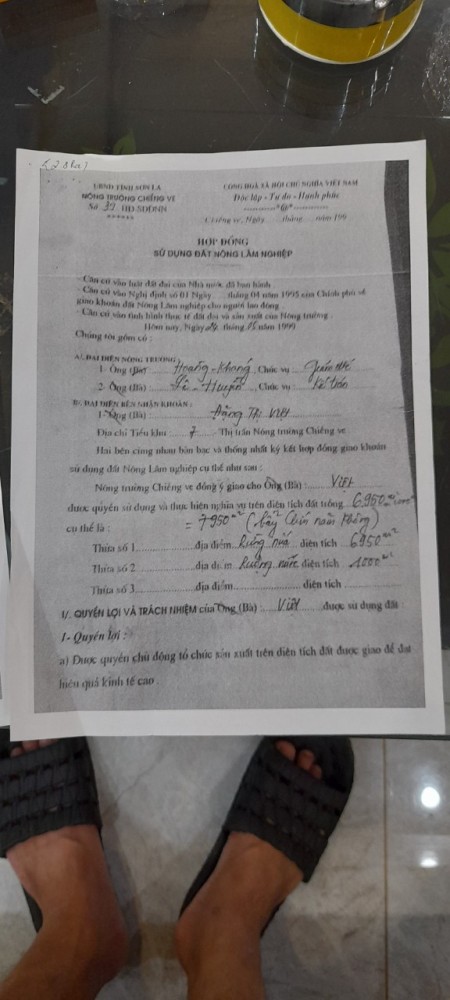 UBND TỈNH SƠN LA
NÔNG TRƯỜNG CHIỀNG VE
Số 37 HĐ-SDĐNN
CỘNG HOÀ XÃ HỘI CHỦ NGHĨA VIỆT NAM
Độc lập - Tự do - Hạnh phúc
Chiềng ve, Ngày......tháng......năm 199
HỢP ĐỒNG
SỬ DỤNG ĐẤT NÔNG LÂM NGHIỆP
- Căn cứ vào luật đất đai của Nhà nước đã ban hành
- Căn cứ vào Nghị định số 01 Ngày......tháng 04 năm 1995 của Chính phủ về
giao khoán đất Nông Lâm nghiệp cho người lao động
- Căn cứ vào tình hình thực tế đất đai và sản xuất của Nông trường
Hôm nay, Ngày tháng năm 1999
Chúng tôi gồm có :
A/. ĐẠI DIỆN NÔNG TRƯỜNG :
1- Ông (Bà) Hoàng - Chức vụ : Giám đốc
2- Ông (Bà) Chức vụ : Kế toán
B/. ĐẠI DIỆN BÊN NHẬN KHOÁN :
1- Ông (Bà) Đặng Thị Việt
Địa chỉ Tiểu khu 7 - Thị trấn Nông trường Chiềng ve
Hai bên cùng nhau bàn bạc và thống nhất ký kết hợp đồng giao khoán
sử dụng đất Nông Lâm nghiệp cụ thể như sau :
Nông trường Chiềng ve đồng ý giao cho Ông (Bà) : Việt
được quyền sử dụng và thực hiện nghĩa vụ trên diện tích đất trồng 6950 m² 1000 m²
cụ thể là : = 7950 m²
Thửa số 1 địa điểm diện tích 6950 m²
Thửa số 2 địa điểm Ruộng nước diện tích 1000 m²
Thửa số 3 địa điểm diện tích
I/. QUYỀN LỢI VÀ TRÁCH NHIỆM của Ông (Bà) : Việt được sử dụng đất
1- Quyền lợi :
a) Được quyền chủ động tổ chức sản xuất trên diện tích đất được giao để đạt
hiệu quả kinh tế cao .